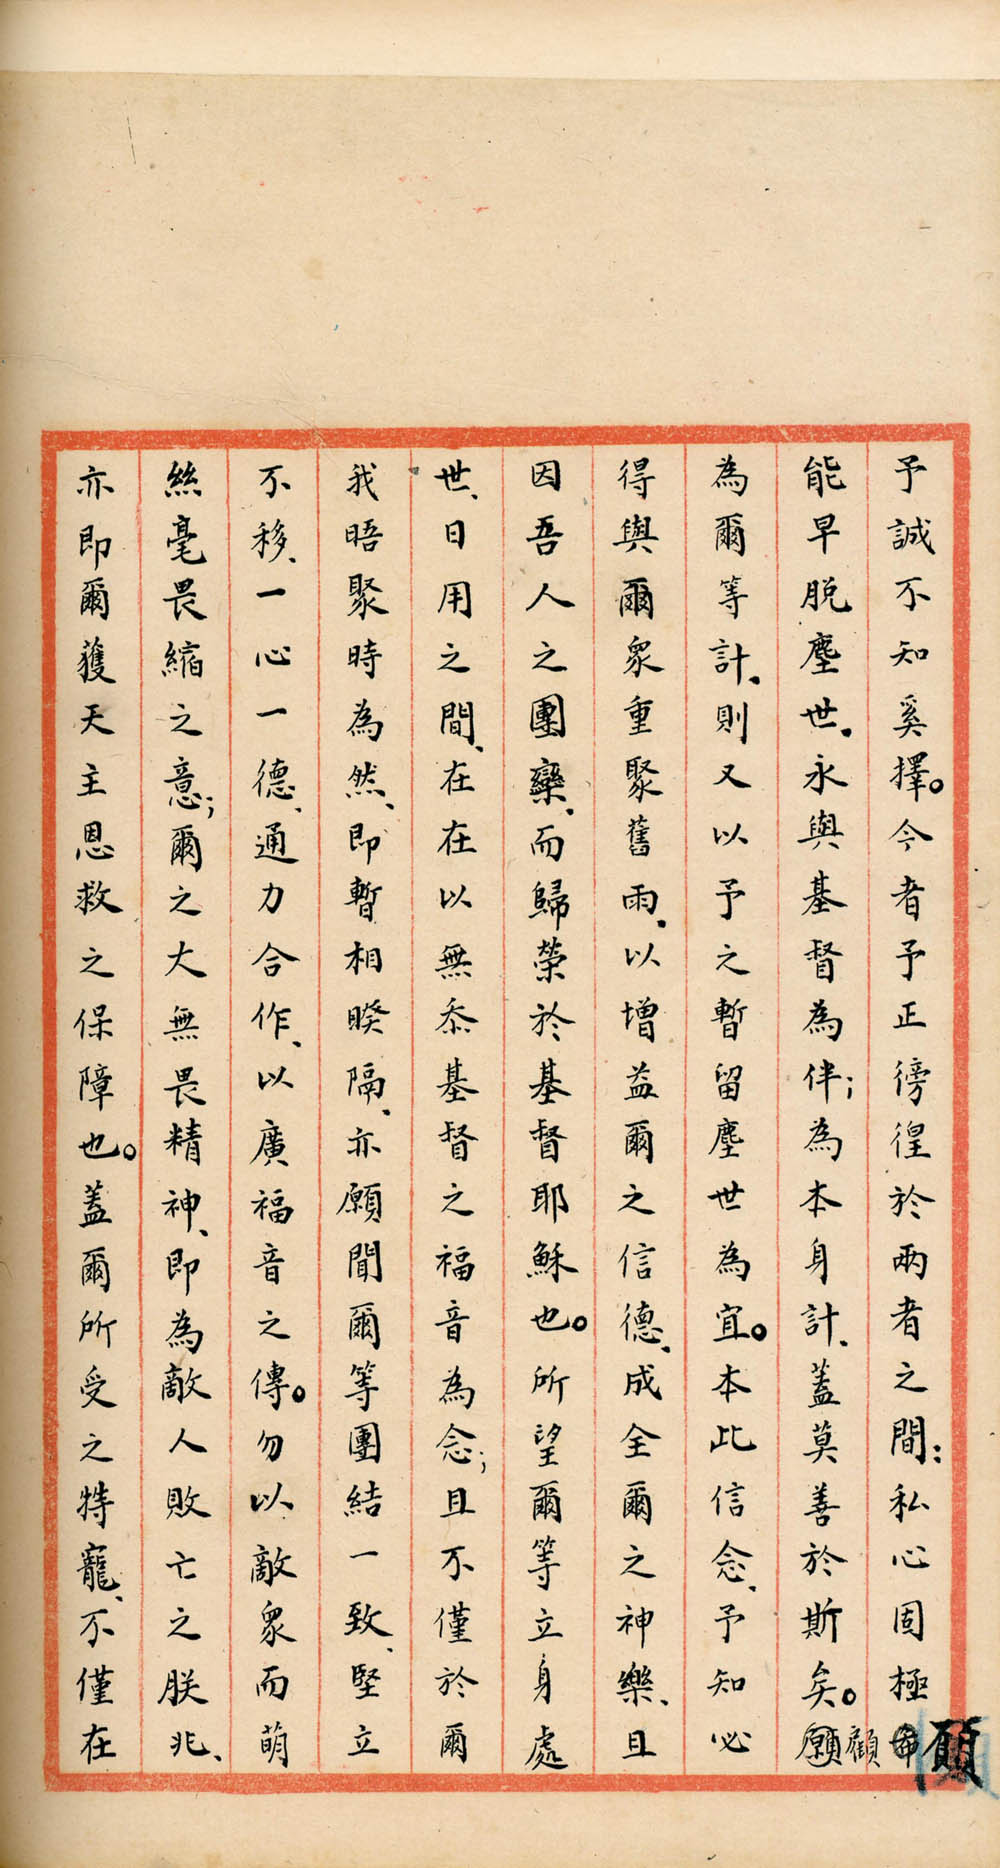 予誠不知奚擇。今者予正徬徨於兩者之間：私心固極願
能早脫塵世、永與基督為伴；為本身計、蓋莫善於斯矣。顧
為爾等計、則又以予之暫留塵世為宜。本此信念、予知必
得與爾眾重聚舊雨、以增益爾之信德、成全爾之神樂、且
因吾人之團欒、而歸榮於基督耶穌也。所望爾等立身處
世、日用之間、在在以無忝基督之福音為念；且不僅於爾
我晤聚時為然、即暫相暌隔、亦願聞爾等團結一致、堅立
不移、一心一德、通力合作、以廣福音之傳。勿以敵眾而萌
絲毫畏縮之意；爾之大無畏精神、即為敵人敗亡之朕兆、
亦即爾獲天主恩救之保障也。蓋爾所受之特寵、不僅在